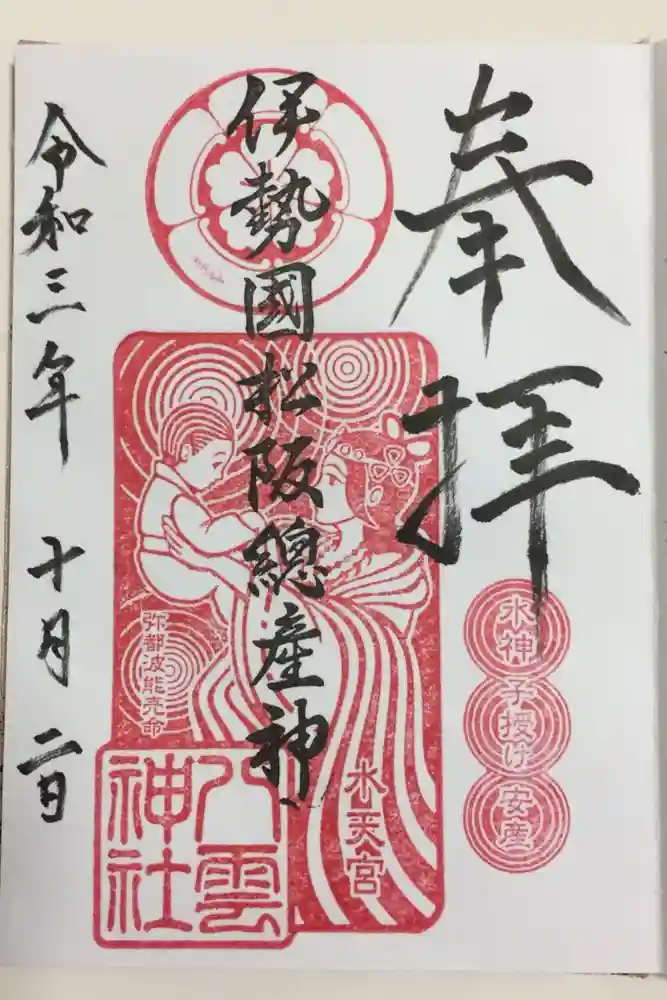 奉拝
水神
子授け
安産
伊勢國松阪總産神
水天宮
弥都波能売命
八雲
神社
令和三年 十月 二日